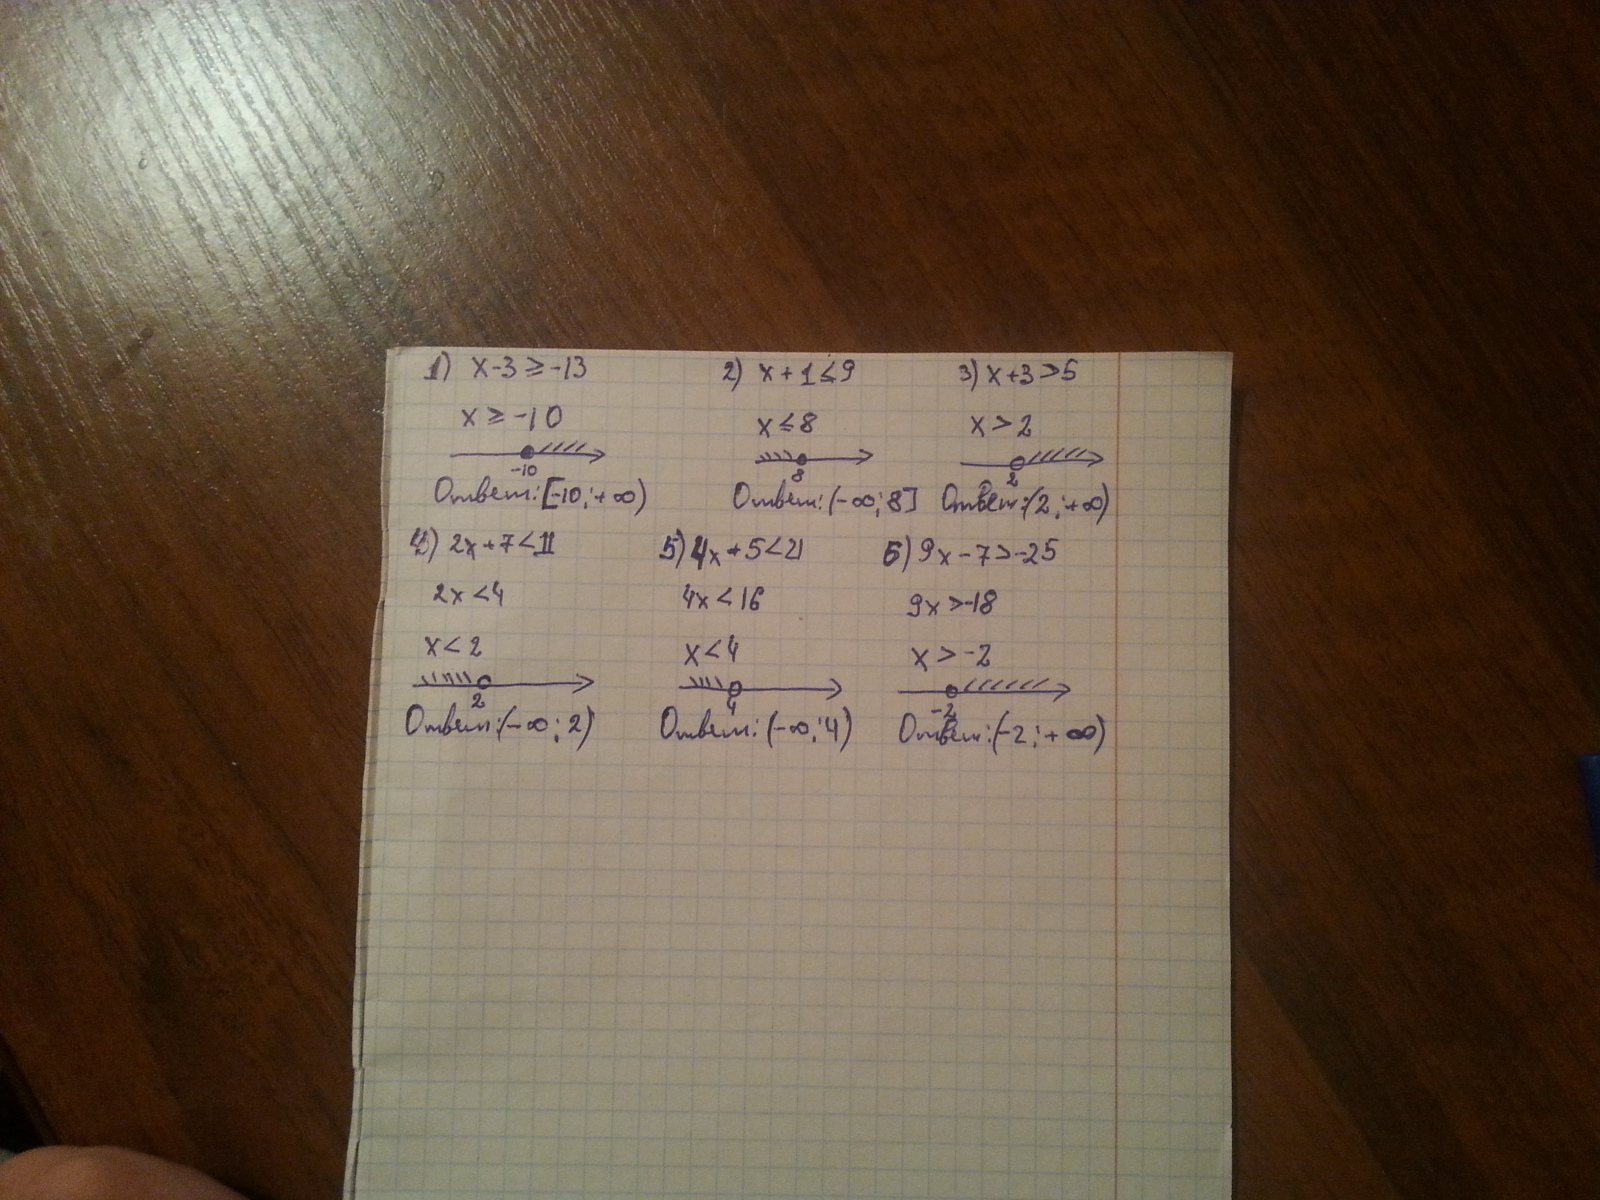 1) x-3≥-13
x≥-10
-10
Ответ: [-10; +∞)
2) x+1≤9
x≤8
8
Ответ: (-∞; 8]
3) x+3>5
x>2
2
Ответ: (2; +∞)
4) 2x+7<11
2x<4
x<2
2
Ответ: (-∞; 2)
5) 4x+5<21
4x<16
x<4
4
Ответ: (-∞; 4)
6) 9x-7>-25
9x>-18
x>-2
-2
Ответ: (-2; +∞)